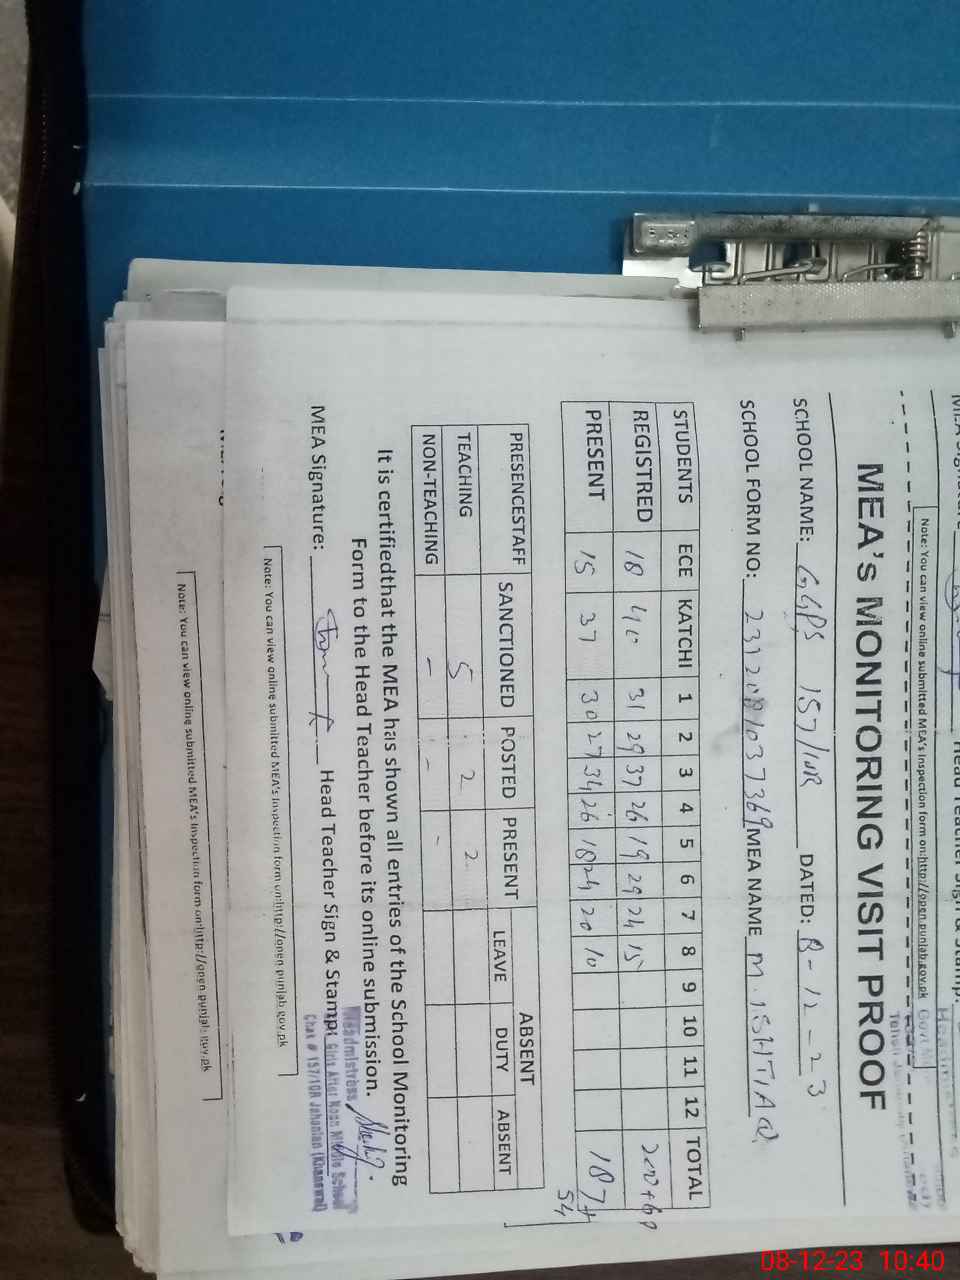 MEA'S MONITORING VISIT PROOF
SCHOOL NAME: GGPS 157/10R DATED: 8-12-23
SCHOOL FORM NO: MEA NAME M. ISHTIAQ
STUDENTS ECE KATCHI 1 2 3 4 5 6 7 8 9 10 11 12 TOTAL
REGISTRED 18 40 31 29 37 26 19 29 24 15 200+68
PRESENT 15 37 30 27 34 26 18 24 20 10 187+
54
PRESENCESTAFF SANCTIONED POSTED PRESENT ABSENT
LEAVE DUTY ABSENT
TEACHING 5 2 2
NON-TEACHING - - -
It is certifiedthat the MEA has shown all entries of the School Monitoring
Form to the Head Teacher before its online submission.
MEA Signature: Head Teacher Sign & Stamp:
Headmistress
Girls After Noon Middle School
Chak # 157/10R Jahanian (Khanewal)
Note: You can view online submitted MEA's Inspection form on:http://open.punjab.gov.pk
Note: You can view online submitted MEA's Inspection form on:http://open.punjab.gov.pk
Note: You can view online submitted MEA's Inspection form on:http://open.punjab.gov.pk
08-12-23 10:40